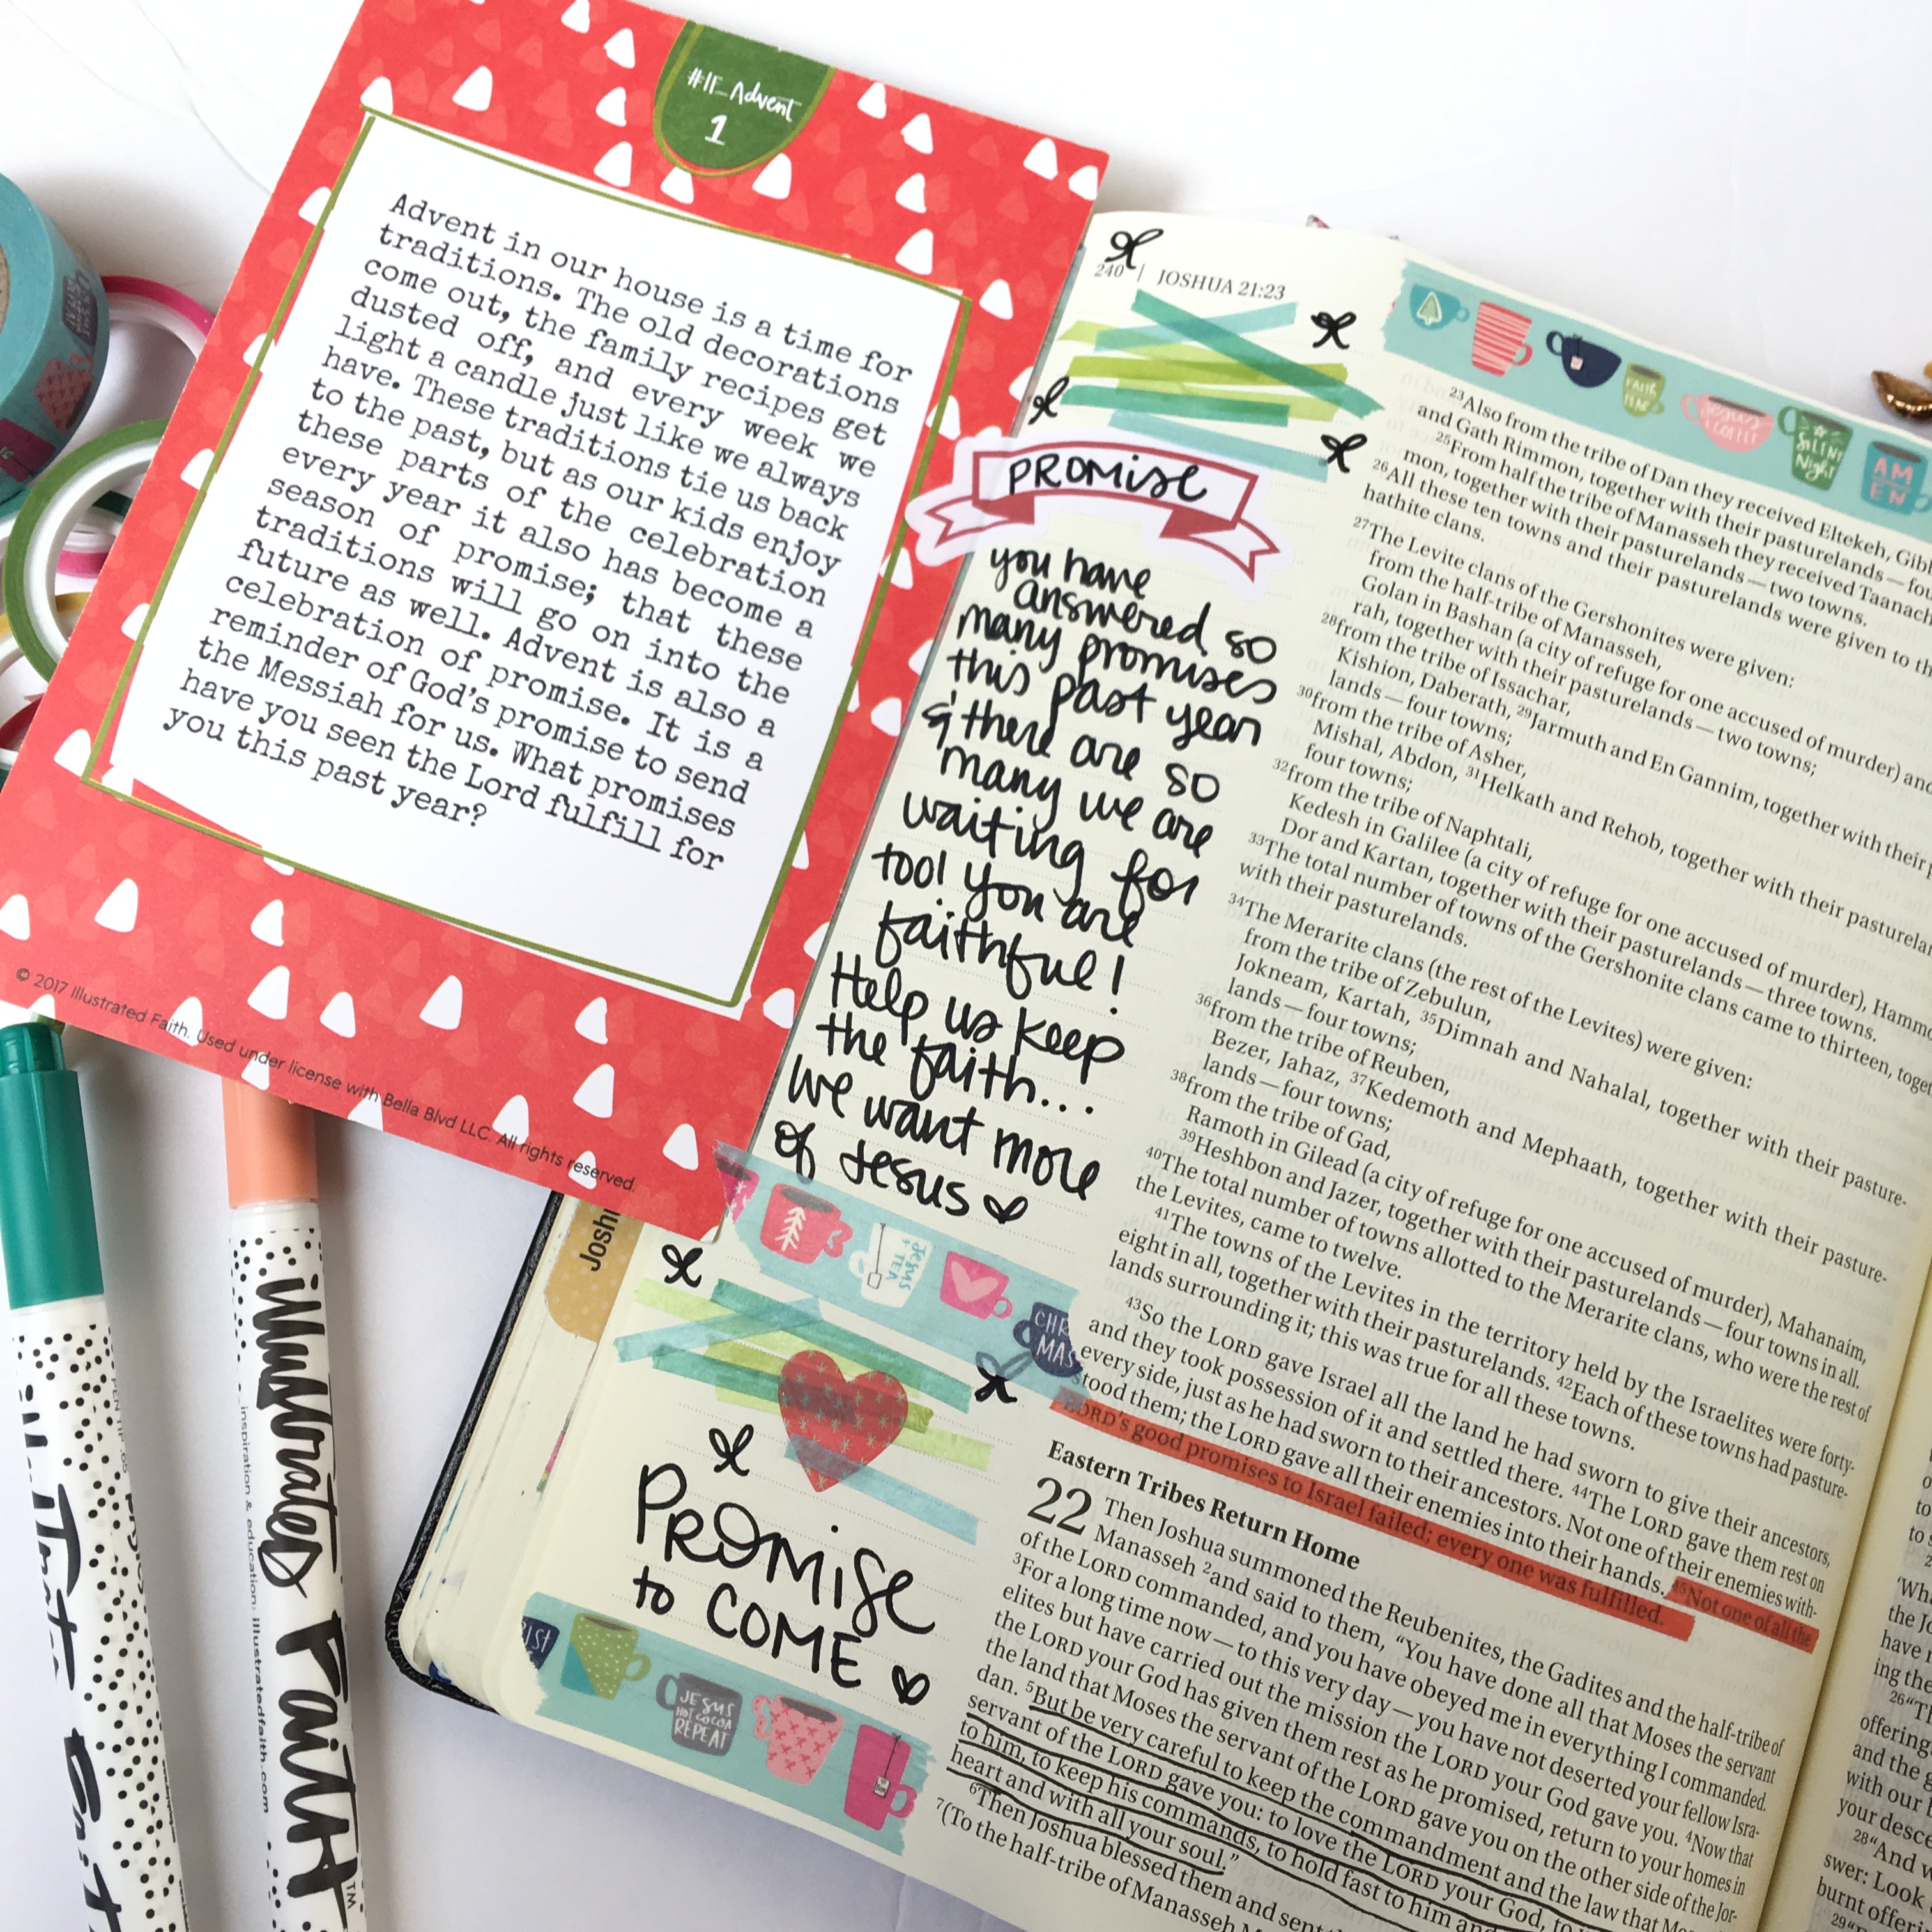 #IF_Advent
1
Advent in our house is a time for
traditions. The old decorations
come out, the family recipes get
dusted off, and every week we
light a candle just like we always
have. These traditions tie us back
to the past, but as our kids enjoy
these parts of the celebration
every year it also has become a
season of promise; that these
traditions will go on into the
future as well. Advent is also a
celebration of promise. It is a
reminder of God's promise to send
the Messiah for us. What promises
have you seen the Lord fulfill for
you this past year?
© 2017 Illustrated Faith. Used under license with Bella Blvd LLC. All rights reserved.
240 | JOSHUA 21:23
PROMISE
you have
answered so
many promises
this past year
& there are so
many we are
waiting for
too! you are
faithful!
Help us keep
the faith...
we want more
of Jesus
JESUS
+ TEA
CHR
MAS
PROMISE
to COME
IST
JESUS
HOT COCOA
REPEAT
FAITH
Jesus
+ COFFEE
SILENT
Night
AM
EN
23Also from the tribe of Dan they received Eltekeh,
and Gath Rimmon, together with their pasturelands—
25From half the tribe of Manasseh they received Taanach
mon, together with their pasturelands—two towns.
26All these ten towns and their pasturelands were given to
hathite clans.
27The Levite clans of the Gershonites were given:
from the half-tribe of Manasseh,
Golan in Bashan (a city of refuge for one accused of murder) and
rah, together with their pasturelands—two towns;
28from the tribe of Issachar,
Kishion, Daberath, 29Jarmuth and En Gannim, together with their
lands—four towns;
30from the tribe of Asher,
Mishal, Abdon, 31Helkath and Rehob, together with their
four towns;
32from the tribe of Naphtali,
Kedesh in Galilee (a city of refuge for one accused of murder),
Dor and Kartan, together with their pasturelands—three towns.
33The total number of towns of the Gershonite clans came to thirteen,
with their pasturelands.
34The Merarite clans (the rest of the Levites) were given:
from the tribe of Zebulun,
Jokneam, Kartah, 35Dimnah and Nahalal, together with their pasture-
lands—four towns;
36from the tribe of Reuben,
Bezer, Jahaz, 37Kedemoth and Mephaath, together with their pasture-
lands—four towns;
38from the tribe of Gad,
Ramoth in Gilead (a city of refuge for one accused of murder), Mahanaim,
39Heshbon and Jazer, together with their pasturelands—four towns in all.
40The total number of towns allotted to the Merarite clans, who were the rest of
the Levites, came to twelve.
41The towns of the Levites in the territory held by the Israelites were forty-
eight in all, together with their pasturelands. 42Each of these towns had pasture-
lands surrounding it; this was true for all these towns.
43So the LORD gave Israel all the land he had sworn to give their ancestors,
and they took possession of it and settled there. 44The LORD gave them rest on
every side, just as he had sworn to their ancestors. Not one of their enemies with-
stood them; the LORD gave all their enemies into their hands. 45Not one of all the
LORD's good promises to Israel failed; every one was fulfilled.
Eastern Tribes Return Home
22 Then Joshua summoned the Reubenites, the Gadites and the half-tribe of
Manasseh 2and said to them, "You have done all that Moses the servant
of the LORD commanded, and you have obeyed me in everything I commanded.
3For a long time now—to this very day—you have not deserted your fellow Isra-
elites but have carried out the mission the LORD your God gave you. 4Now that
the LORD your God has given them rest as he promised, return to your homes in
the land that Moses the servant of the LORD gave you on the other side of the Jor-
dan. 5But be very careful to keep the commandment and the law that
servant of the LORD gave you: to love the LORD your God,
to him, to keep his commands, to hold fast to him
heart and with all your soul."
6Then Joshua blessed them and sent
7(To the half-tribe of Manasseh
illustrated Faith™
inspiration & education: illustratedfaith.com